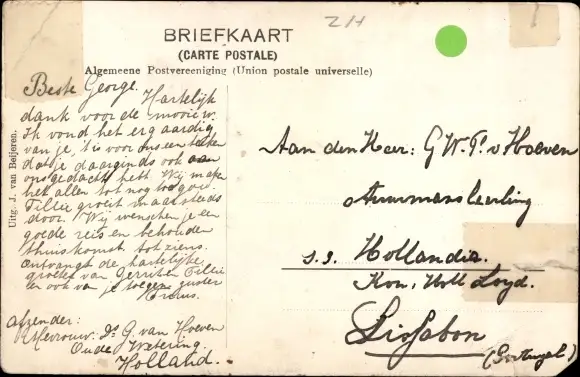 Z/H
BRIEFKAART
(CARTE POSTALE)
Algemeene Postvereeniging (Union postale universelle)
Uitg. J. van Beijeren.
Beste George. Hartelijk
dank voor de mooie
Ik vond het erg aardig
van je, 't is voor ons een teeken
dat je daarginds ook aan
ons gedacht hebt. Wij maken
het allen tot nog toe goed.
Tillie groeit maar steeds
door. Wij wenschen je een
goede reis en behouden
thuiskomst tot ziens.
Ontvangt de hartelijke
groeten van Gerrit en Tillie
en ook van je toegen. zuster
Aan den Heer: G W. P. v Hoeven
Stuurmansleerling
s.s. Hollandia.
Kon. Holl Loyd.
Lissabon
(Portugal)
Afzender:
Mevrouw. Ds G. van Hoeven
Oude Wetering.
Holland.